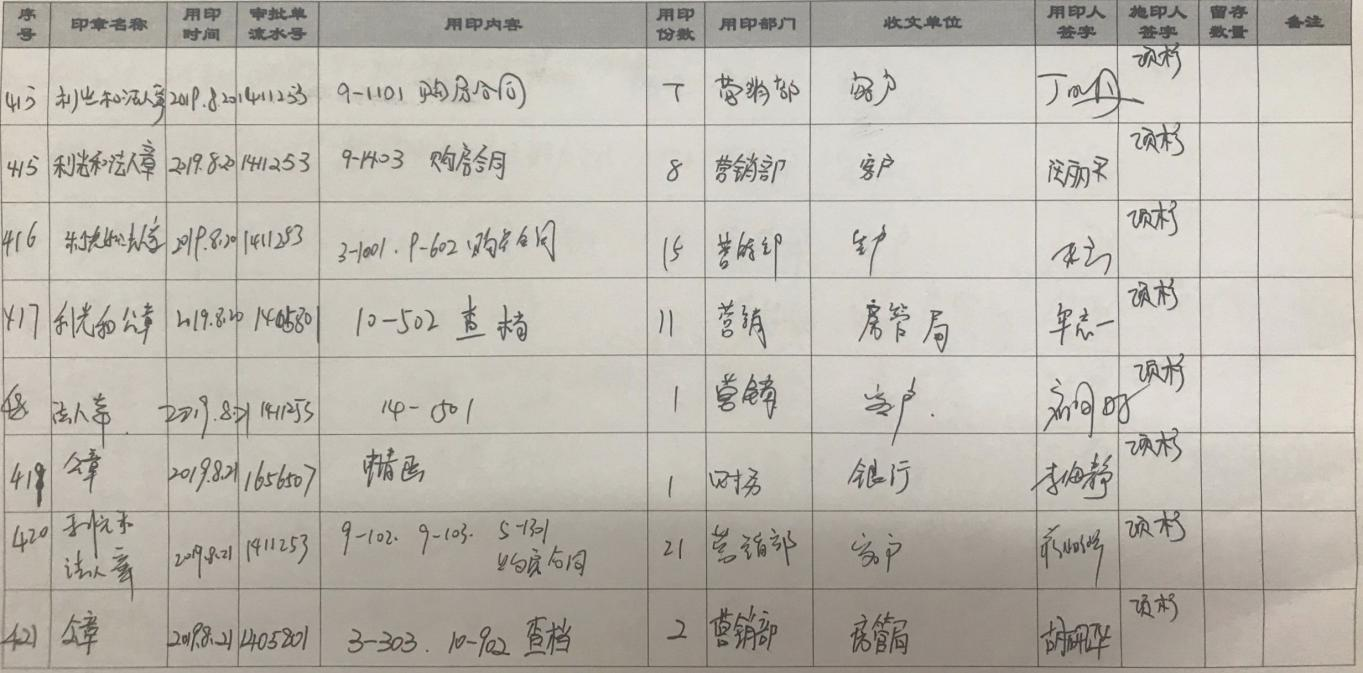 序号 印章名称 用印时间 审批单流水号 用印内容 用印份数 用印部门 收文单位 用印人签字 施印人签字 留存数量 备注
415 利光和法人章 2019.8.20 1411253 9-1101 购房合同 7 营销部 客户 项杉
415 利光和法人章 2019.8.20 1411253 9-1403 购房合同 8 营销部 客户 项杉
416 利光和法人章 2019.8.20 1411253 3-1001.9-602购房合同 15 营销部 客户 项杉
417 利光和公章 2019.8.20 1405801 10-502 查档 11 营销 房管局 牟志一 项杉
418 法人章 2019.8.21 1411253 14-501 1 营销 客户. 项杉
419 公章 2019.8.21 1656507 申请函 1 财务 银行 项杉
420 利光和法人章 2019.8.21 1411253 9-102. 9-103. 5-1301 购房合同 21 营销部 客户 项杉
421 公章 2019.8.21 1405801 3-303. 10-902 查档 2 营销部 房管局 项杉